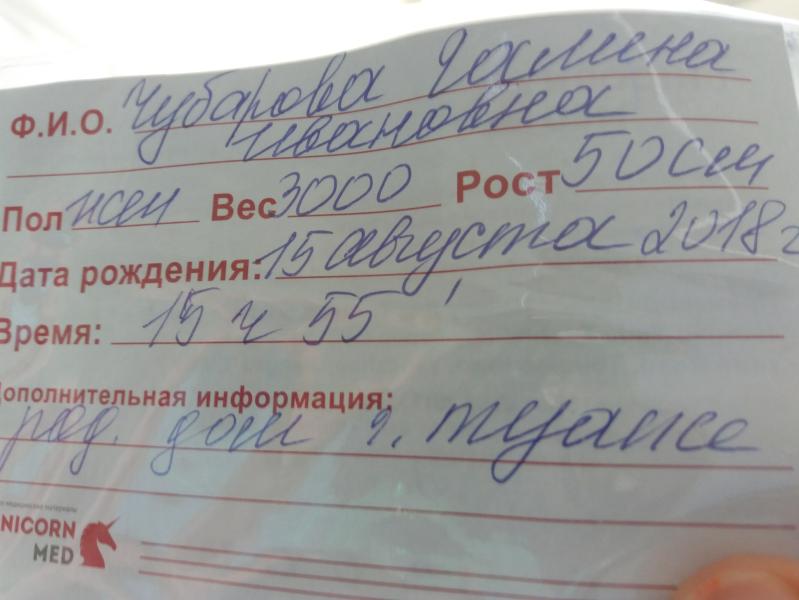 Ф.И.О. Чубарова Галина
Ивановна
Пол жен Вес 3000 Рост 50см
Дата рождения: 15 августа 2018г
Время: 15 ч 55 '
Дополнительная информация:
род. дом г. Туапсе
NICORN
MED